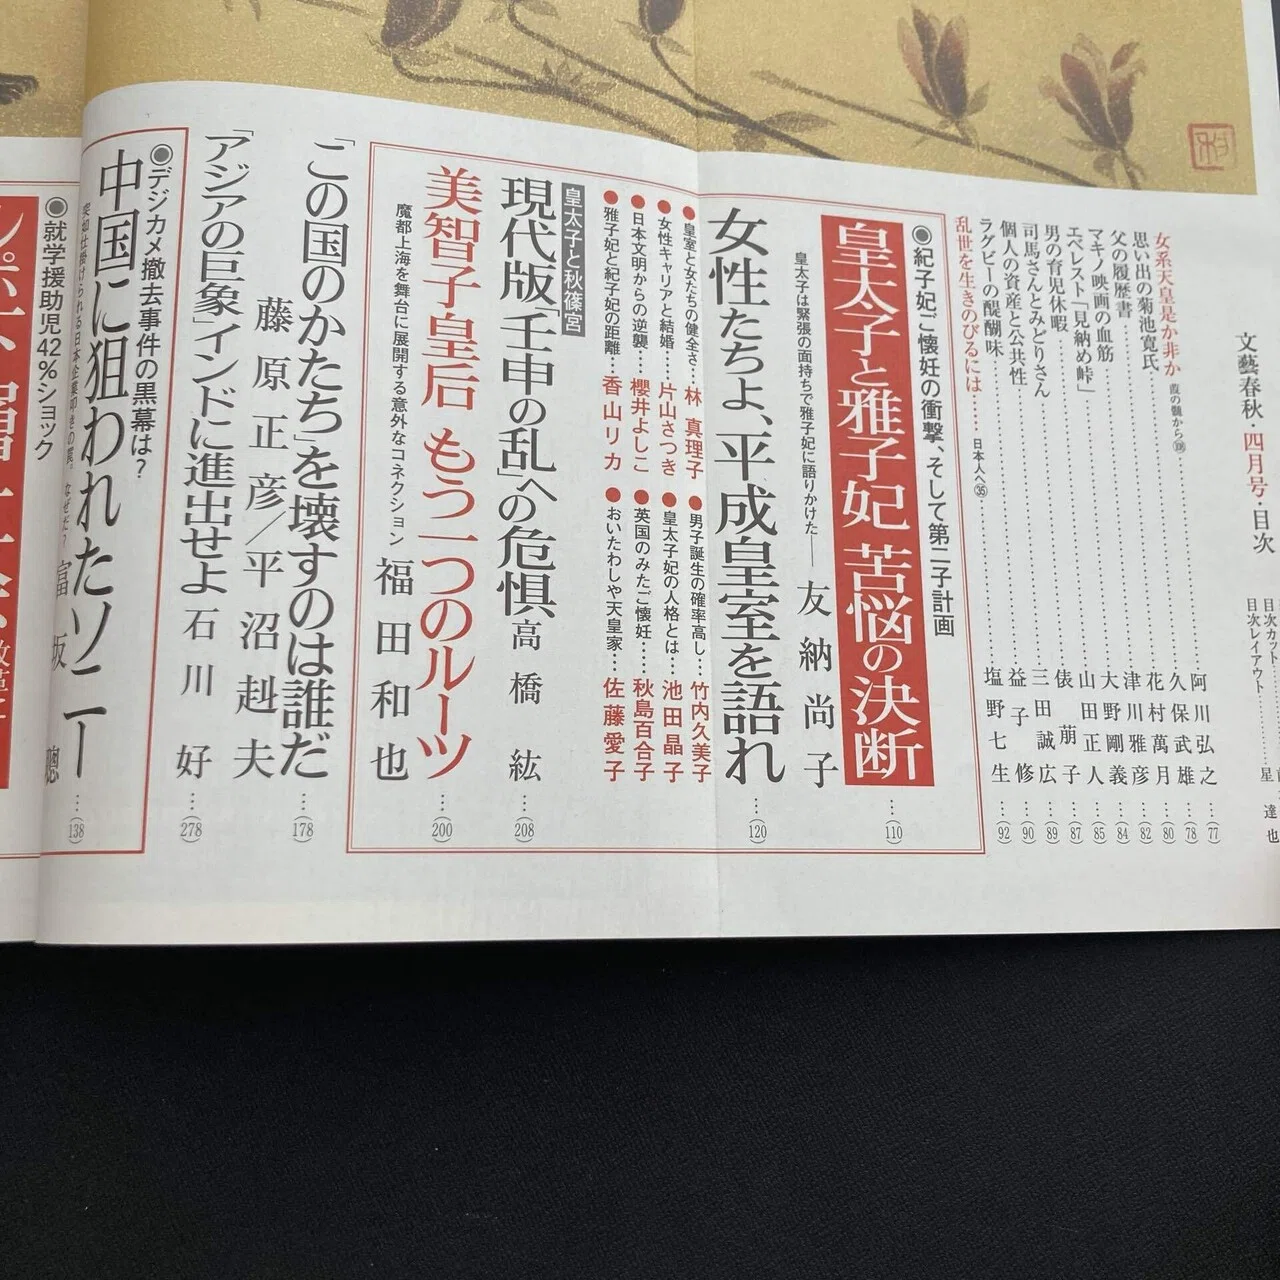 文藝春秋・四月号・目次
目次カット
目次レイアウト……星 達也
女系天皇是か非か 葭の髄から
阿川弘之……(77)
思い出の菊池寛氏……久保武雄……(78)
父の履歴書……花村萬月……(80)
マキノ映画の血筋……津川雅彦……(82)
エベレスト「見納め峠」……大野剛義……(84)
男の育児休暇……山田正人……(85)
司馬さんとみどりさん……俵 萠子……(87)
個人の資産と公共性……三田誠広……(89)
ラグビーの醍醐味……益子 修……(90)
乱世を生きのびるには…… 日本人へ㉟
塩野七生……(92)
◉紀子妃「ご懐妊」の衝撃、そして第二子計画
皇太子と雅子妃 苦悩の決断……(110)
皇太子は緊張の面持ちで雅子妃に語りかけた―― 友納尚子
女性たちよ、平成皇室を語れ……(120)
●皇室と女たちの健全さ…林 真理子
●男子誕生の確率高し…竹内久美子
●女性キャリアと結婚……片山さつき
●皇太子妃の人格とは…池田晶子
●日本文明からの逆襲……櫻井よしこ
●英国のみたご懐妊……秋島百合子
●雅子妃と紀子妃の距離…香山リカ
●おいたわしや天皇家…佐藤愛子
皇太子と秋篠宮
現代版「壬申の乱」への危惧 高橋 紘……(208)
美智子皇后 もう一つのルーツ……(200)
魔都上海を舞台に展開する意外なコネクション 福田和也
「この国のかたち」を壊すのは誰だ……(178)
藤原正彦／平沼赳夫
「アジアの巨象」インドに進出せよ 石川 好……(278)
◉デジカメ撤去事件の黒幕は？
中国に狙われたソニー……(138)
突如仕掛けられる日本企業叩きの罠。なぜだ？ 富坂 聰
◉就学援助児42%ショック